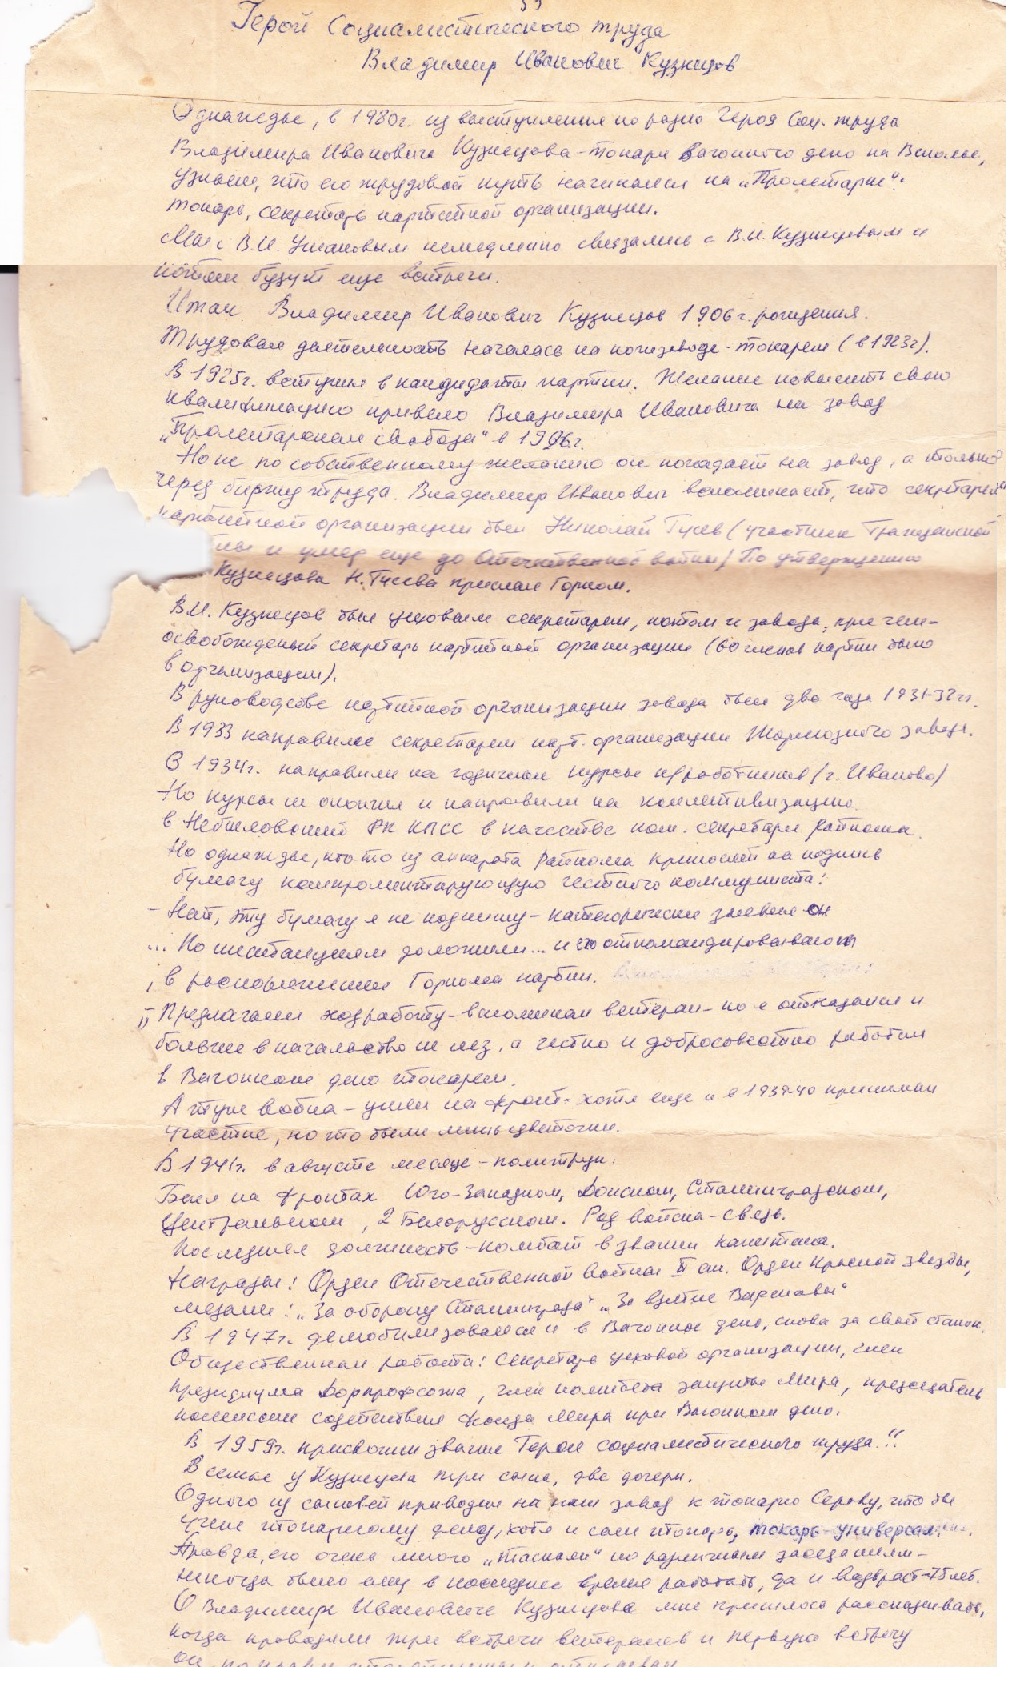 Герой Социалистического труда
Владимир Иванович Кузнецов
Однажды, в 1980г. из выступления по радио Героя Соц. труда
Владимира Ивановича Кузнецова - токаря Вагонного депо на Всполье,
узнаем, что его трудовой путь начинался на „Пролетарке".
токарь, секретарь партийной организации.
Мы с В.И Ушаковым немедленно связались с В.И. Кузнецовым и
потом будут еще встречи.
Итак Владимир Иванович Кузнецов 1906 г. рождения.
Трудовая деятельность началась на кожзаводе - токарем (в 1923г).
В 1925г. вступил в кандидаты партии. Желание повысить свою
квалификацию привело Владимира Ивановича на завод
„Пролетарская свобода" в 1926г.
Но не по собственному желанию он попадает на завод, а только
через биржу труда. Владимир Иванович вспоминает, что секретарем
партийной организации был Николай Гусев (участник Гражданской
и умер еще до Отечественной войны) По утверждению
Кузнецова Н. Гусева прислал Горком.
В.И. Кузнецов был цеховым секретарем, потом и завода, при чем -
освобожденый секретарь партийной организации (60 членов партии было
в организации).
В руководстве партийной организации завода был два года 1931-32 гг.
В 1933 направили секретарем парт. организации Тормозного завода.
В 1934г. направили на годичные курсы п/работников (г. Иваново)
Но курсы не окончил и направили на коллективизацию
в Небыловский РК КПСС в качестве пом. секретаря райкома.
Но однажды, кто то из аппарата райкома приносит на подпись
бумагу компроментирующую честного коммуниста:
- Нет, эту бумагу я не подпишу - категорически заявил он
... По инстанциям доложили... и откомандировывают
в распоряжение Горкома партии.
„Предлагали хозработу - вспоминал ветеран - но я отказался и
больше в начальство не лез, а честно и добросовестно работал
в Вагонном депо токарем.
А тут война - ушел на фронт - хотя еще и в 1939-40 принимал
участие, но то были лишь цветочки.
В 1941г. в августе месяце - политрук.
Был на фронтах Юго-Западном, Донском, Сталинградском,
Центральном, 2 Белорусском. Род войска - связь.
Последняя должность - комбат в звании капитана.
Награды: Орден Отечественной войны II ст. Орден Красной звезды,
медали: „За оборону Сталинграда" „За взятие Варшавы"
В 1947г. демобилизовался и в Вагонное депо, снова за свой станок.
Общественная работа: секретарь цеховой организации, член
президиума Дорпрофсожа, член комитета защиты Мира, председатель
комиссии содействия фонда Мира при Вагонном депо.
В 1959г. присвоили звание Героя социалистического труда!!
В семье у Кузнецова три сына, две дочери.
Одного из сыновей приводил на наш завод к токарю Серову, что бы
учил токарному делу, хотя и сам токарь, токарь-универсал.
Правда, его очень много „таскали" по различным заседаниям -
некогда было ему в последнее время работать, да и возраст - 75 лет.
О Владимире Ивановиче Кузнецове мне пришлось рассказывать,
когда проводили три встречи ветеранов и первую встречу